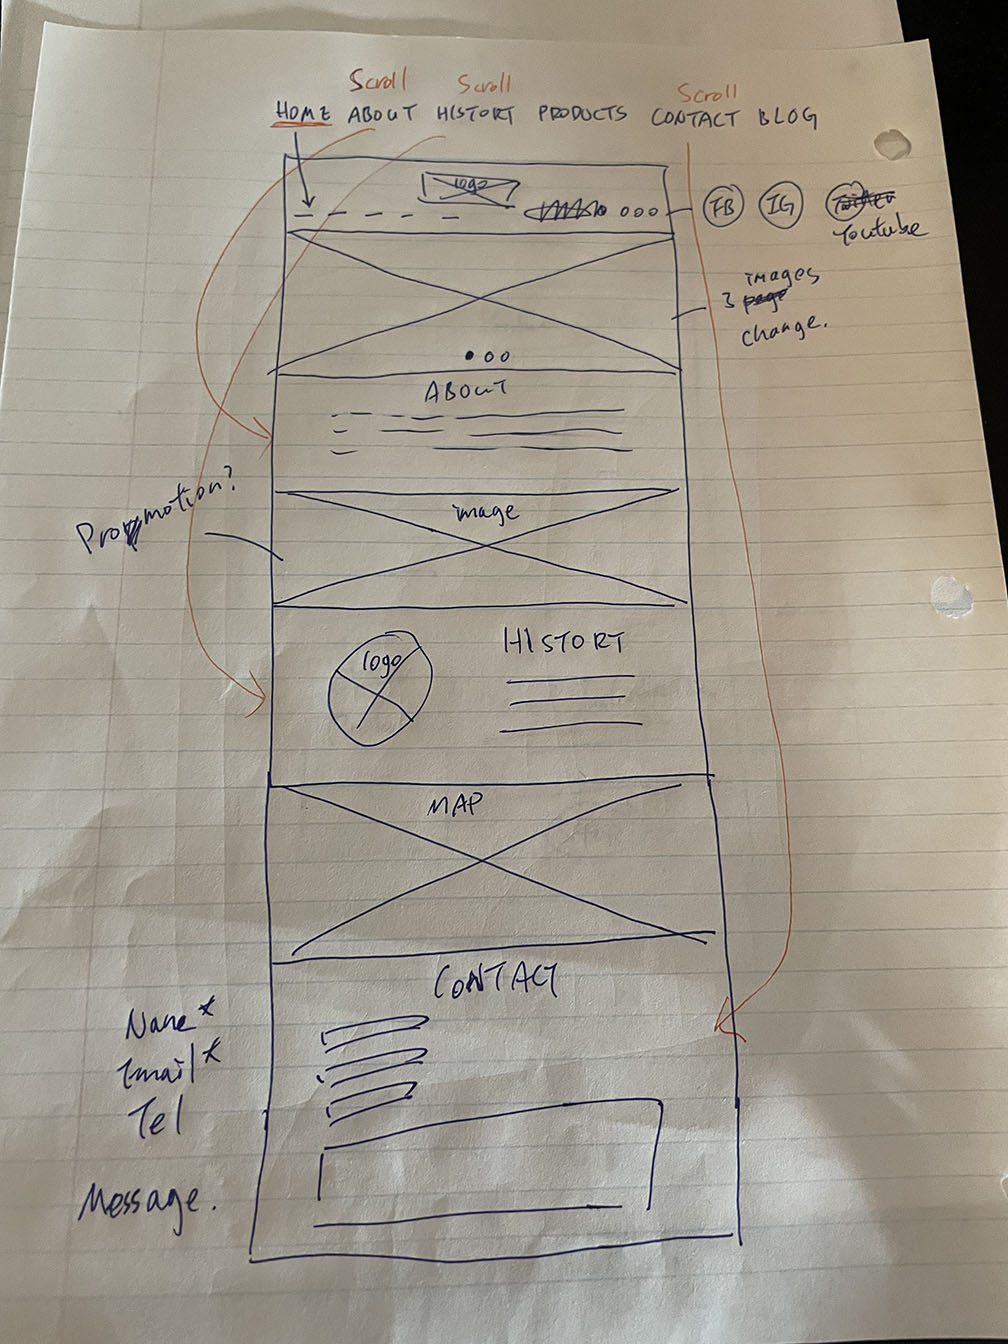 Scroll Scroll Scroll
HOME ABOUT HISTORY PRODUCTS CONTACT BLOG
logo
FB IG Twitter
Youtube
images
3 page
change.
ABOUT
image
Promotion?
logo
HISTORY
MAP
CONTACT
Name*
Email*
Tel
Message.